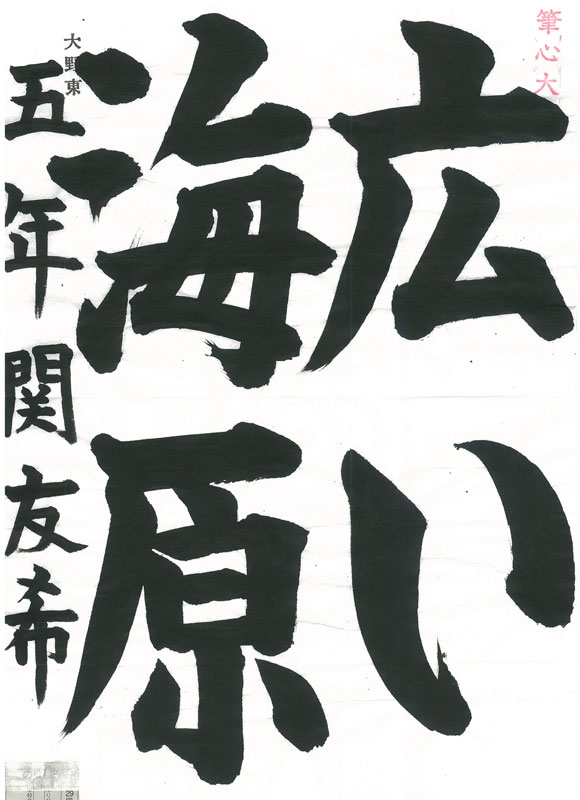 筆心大
広い
海原
大野東
五年関友希